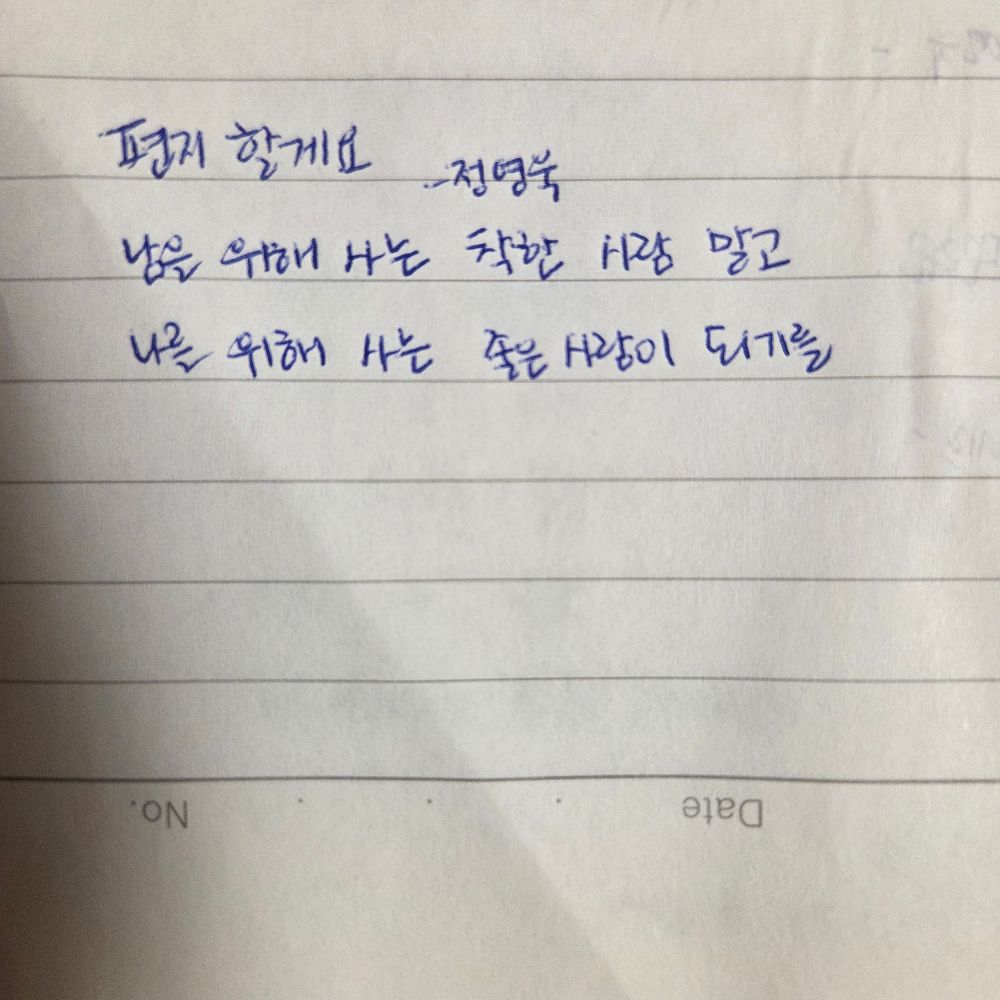 편지 할게요
-정영욱
남을 위해 사는 착한 사람 말고
나를 위해 사는 좋은 사람이 되기를
No. . . . Date